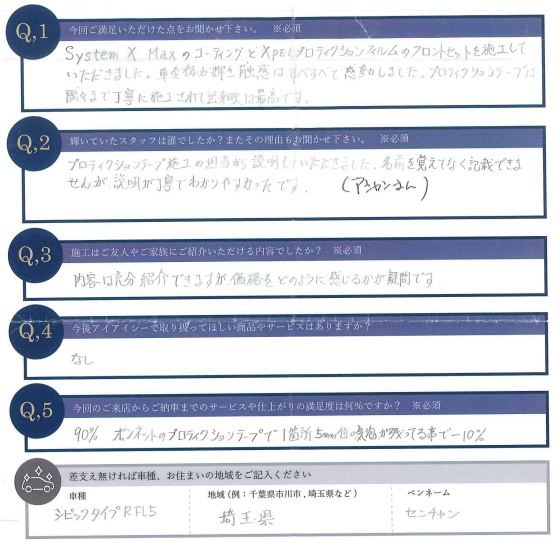 Q,1
今回ご満足いただけた点をお聞かせ下さい。 ※必須
System X Maxのコーティングと XPELプロテクションフィルムのフロントセットを施工して
いただきました。車全体が輝き触感はすべすべで感動しました。プロテクションテープは
隅々まで丁寧に施工されて出来栄は最高です。
Q,2
輝いていたスタッフは誰でしたか?またその理由もお聞かせ下さい。 ※必須
プロティクションテープ施工の担当が説明していただきました。名前を覚えてなく記載できま
せんが、説明が丁寧でわかりやすかったです。
Q,3
施工はご友人やご家族にご紹介いただける内容でしたか? ※必須
内容は充分紹介できますが価格をどのように感じるかが疑問です
Q,4
今後アイアイシーで取り扱ってほしい商品やサービスはありますか?
なし
Q,5
今回のご来店からご納車までのサービスや仕上がりの満足度は何%ですか? ※必須
90% ボンネットのプロティクションテープで1箇所5mm位の気泡が残ってる事で-10%
差支え無ければ車種、お住まいの地域をご記入ください
車種
地域 (例:千葉県市川市, 埼玉県など)
ペンネーム
シビックタイプR FL5
埼玉県
センチャン